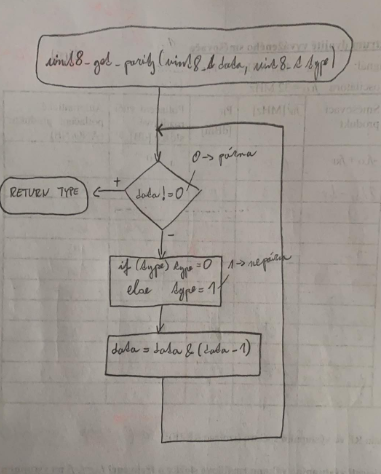 uint8_get_parity(uint8_t data, uint8_t type)
0 → párna
+
data != 0
RETURN TYPE
-
if (type) type = 0
else type = 1
1 → nepárna
data = data & (data - 1)